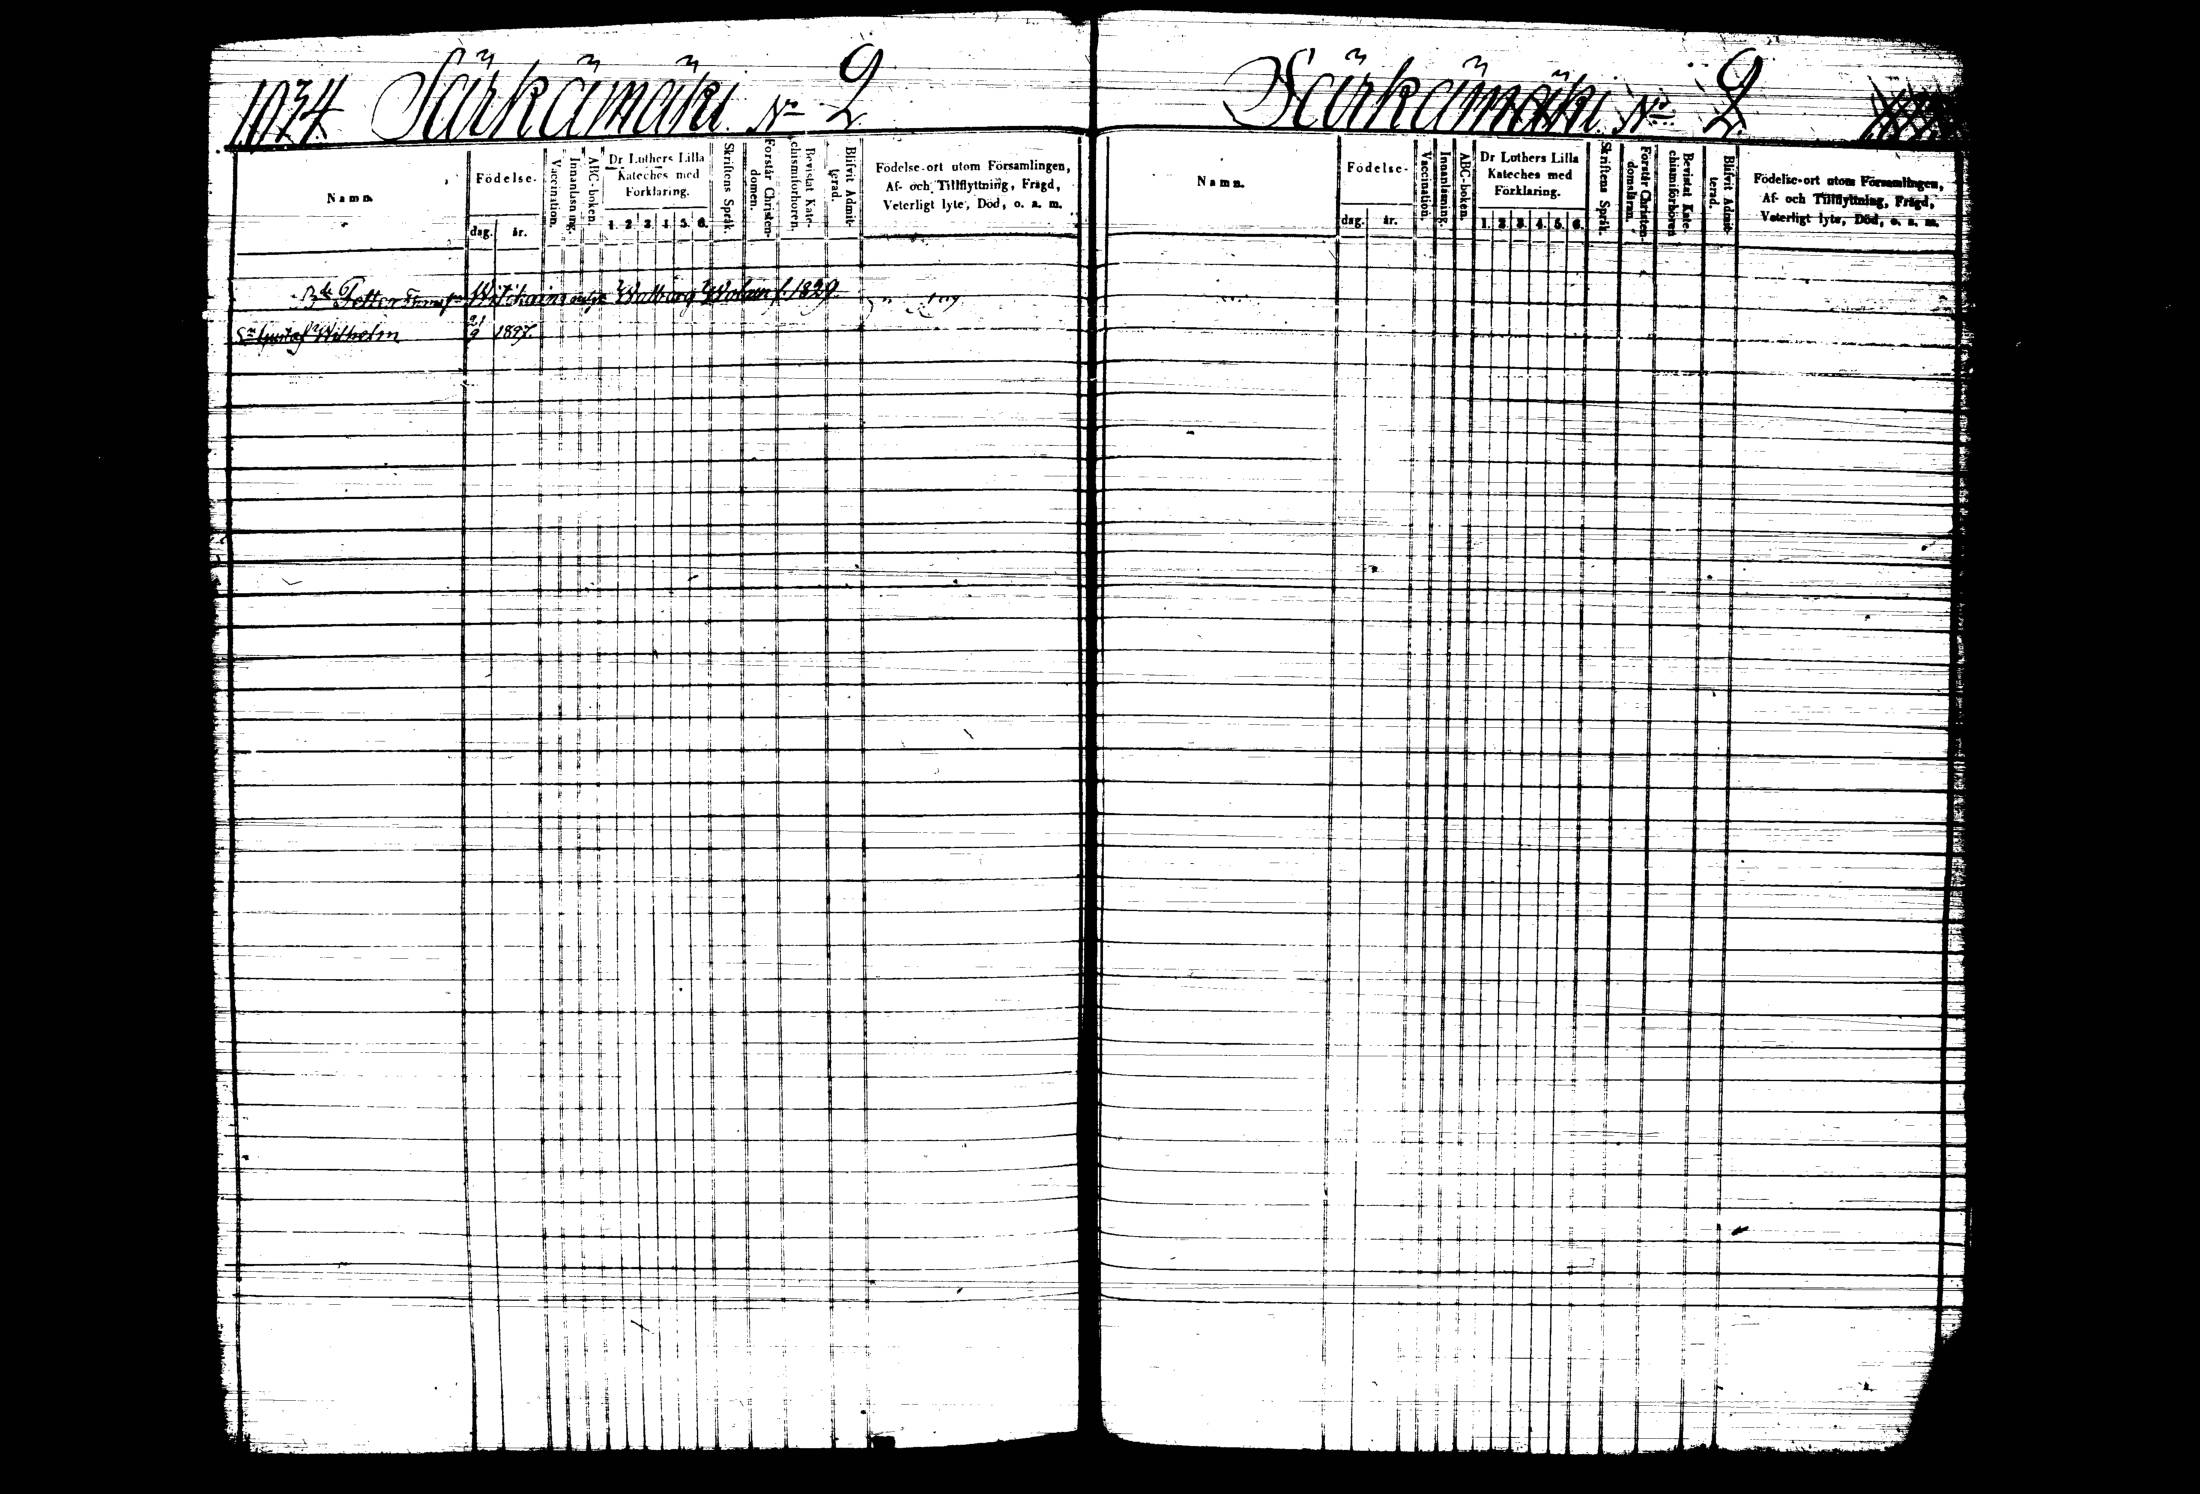 1034 Särkämäki No 2
Namn
Födelse.
dag. år.
Vaccination.
Innanläsning.
ABC-boken.
Dr Luthers Lilla
Kateches med
Förklaring.
1. 2 3 4 5. 6.
Skriftens Språk.
Förstår Christen-
domen.
Bevistat Kate-
chismiförhören.
Blifvit Admit-
terad.
Födelse-ort utom Församlingen,
Af- och Tillflyttning, Frägd,
Veterligt lyte, Död, o. a. m.
Petter Walborg f. 1829.
Sn Gustaf Wilhelm 21/9 1897.
Särkämäki No 2
Namn.
Födelse-
dag. år.
Vaccination.
Innanläsning.
ABC-boken.
Dr Luthers Lilla
Kateches med
Förklaring.
1. 2. 3. 4. 5. 6.
Skriftens Språk.
Förstår Christen-
domsläran.
Bevistat Kate-
chismiförhören
Blifvit Admit-
terad.
Födelse-ort utom Församlingen,
Af- och Tillflyttning, Frägd,
Veterligt lyte, Död, o. a. m.